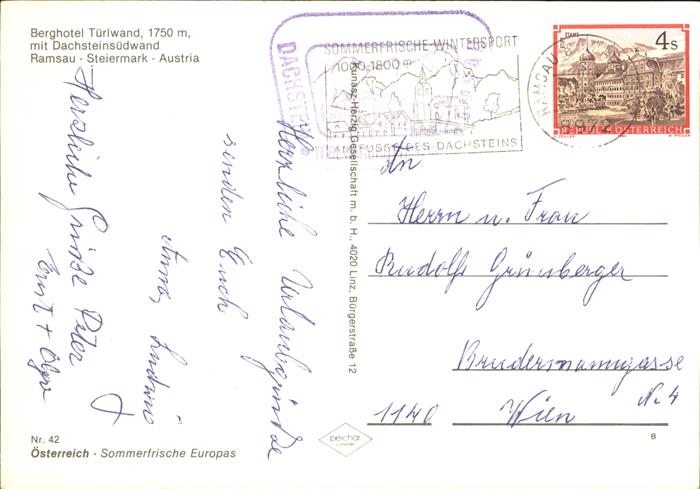 Berghotel Türlwand, 1750 m,
mit Dachsteinsüdwand
Ramsau · Steiermark · Austria
SOMMERFRISCHE-WINTERSPORT
1000-1800 m
AM FUSSE DES DACHSTEINS
RAMSAU
STIFT STAMS
4 S
REPUBLIK ÖSTERREICH
Herzliche Urlaubsgrüße
senden Euch
Anna, Ludwig
Herzliche Grüße Peter
Ernst + Olga
Kunasz-Herzig Gesellschaft m. b. H., 4020 Linz, Bürgerstraße 12
An
Herrn u. Frau
Rudolf Grünberger
Brudermanngasse
No 4
1140 Wien
Nr. 42
Österreich · Sommerfrische Europas
peichar
B